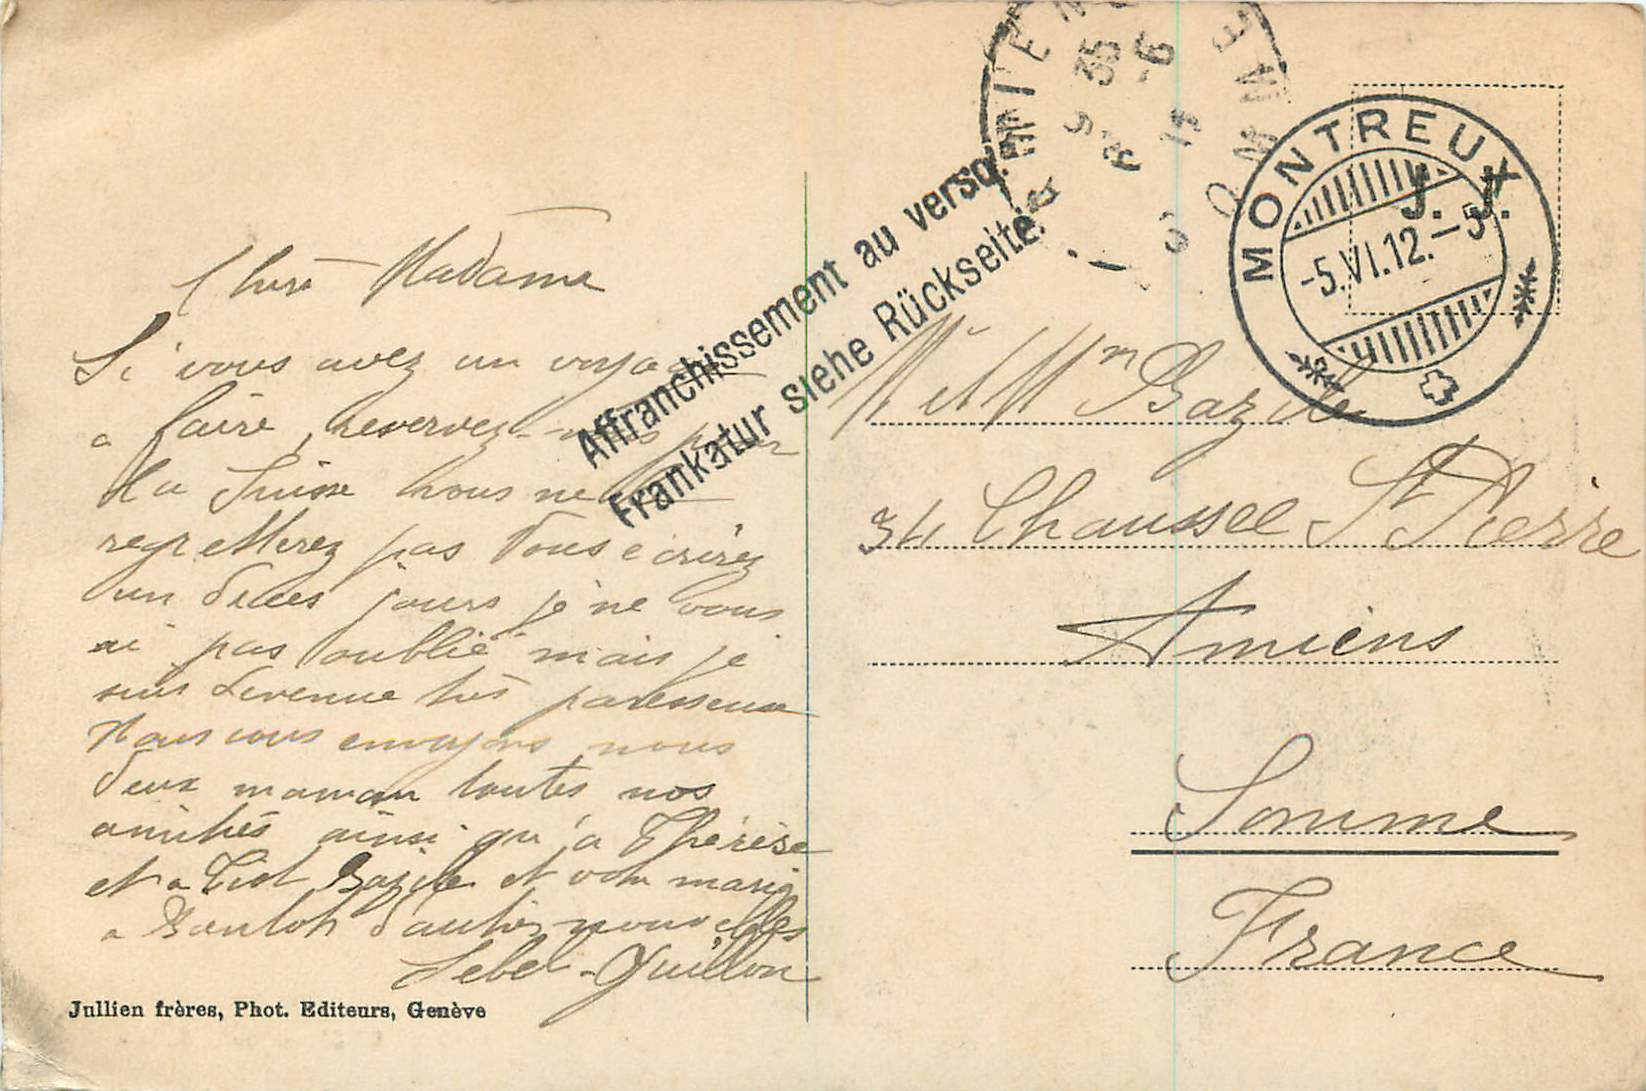 Chère Madame
Si vous avez un voyage
a faire, reservez-nous pour
la Suisse vous ne le
regretterez pas Vous ecrirez
un de ces jours je ne vous
ai pas oublié mais je
suis devenue très paresseuse
Nous vous envoyons nous
deux maman toutes nos
amitiés ainsi qu'a Thérèse
et a Tiot Bazile et votre mari
a Bientot d'autres nouvelles
Lebel-Quillon
Jullien frères, Phot. Editeurs, Genève
Affranchissement au verso.
Frankatur siehe Rückseite.
SOMME
9 35
-6
MONTREUX
-5.VI.12.-5
J. J.
Mr et Mme Bazile
34 Chaussee St Pierre
Amiens
Somme
France